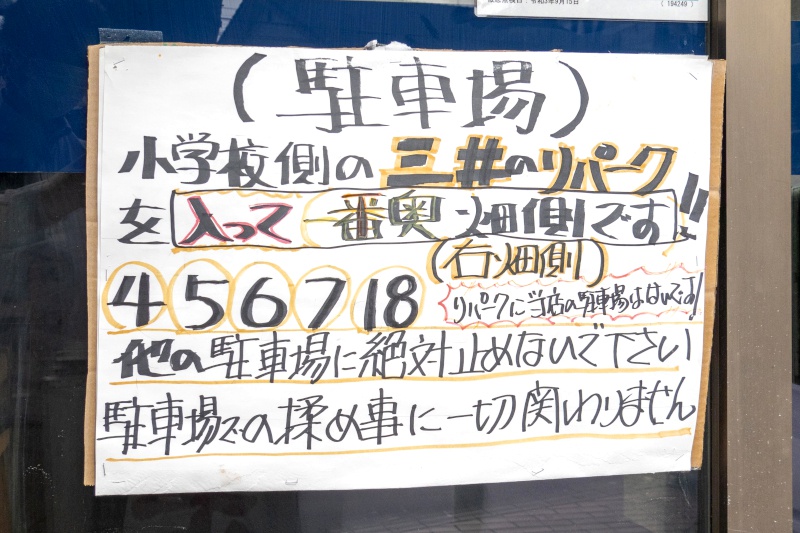 令和3年9月15日
(194249)
(駐車場)
小学校側の三井のリパーク
を入って一番奥畑側です!!
(右畑側)
4 5 6 7 18
リパークに当店の駐車場はないです!
他の駐車場に絶対止めないで下さい
駐車場での揉め事に一切関わりません